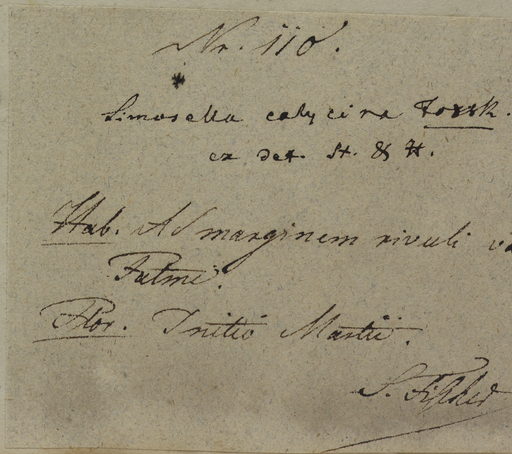 Nr. 110.
*
Limosella calycina Forssk.
ex det. St. & H.
Hab. Ad marginem rivuli
Fatmé.
Flor. Initio Martii.
S. Fischer